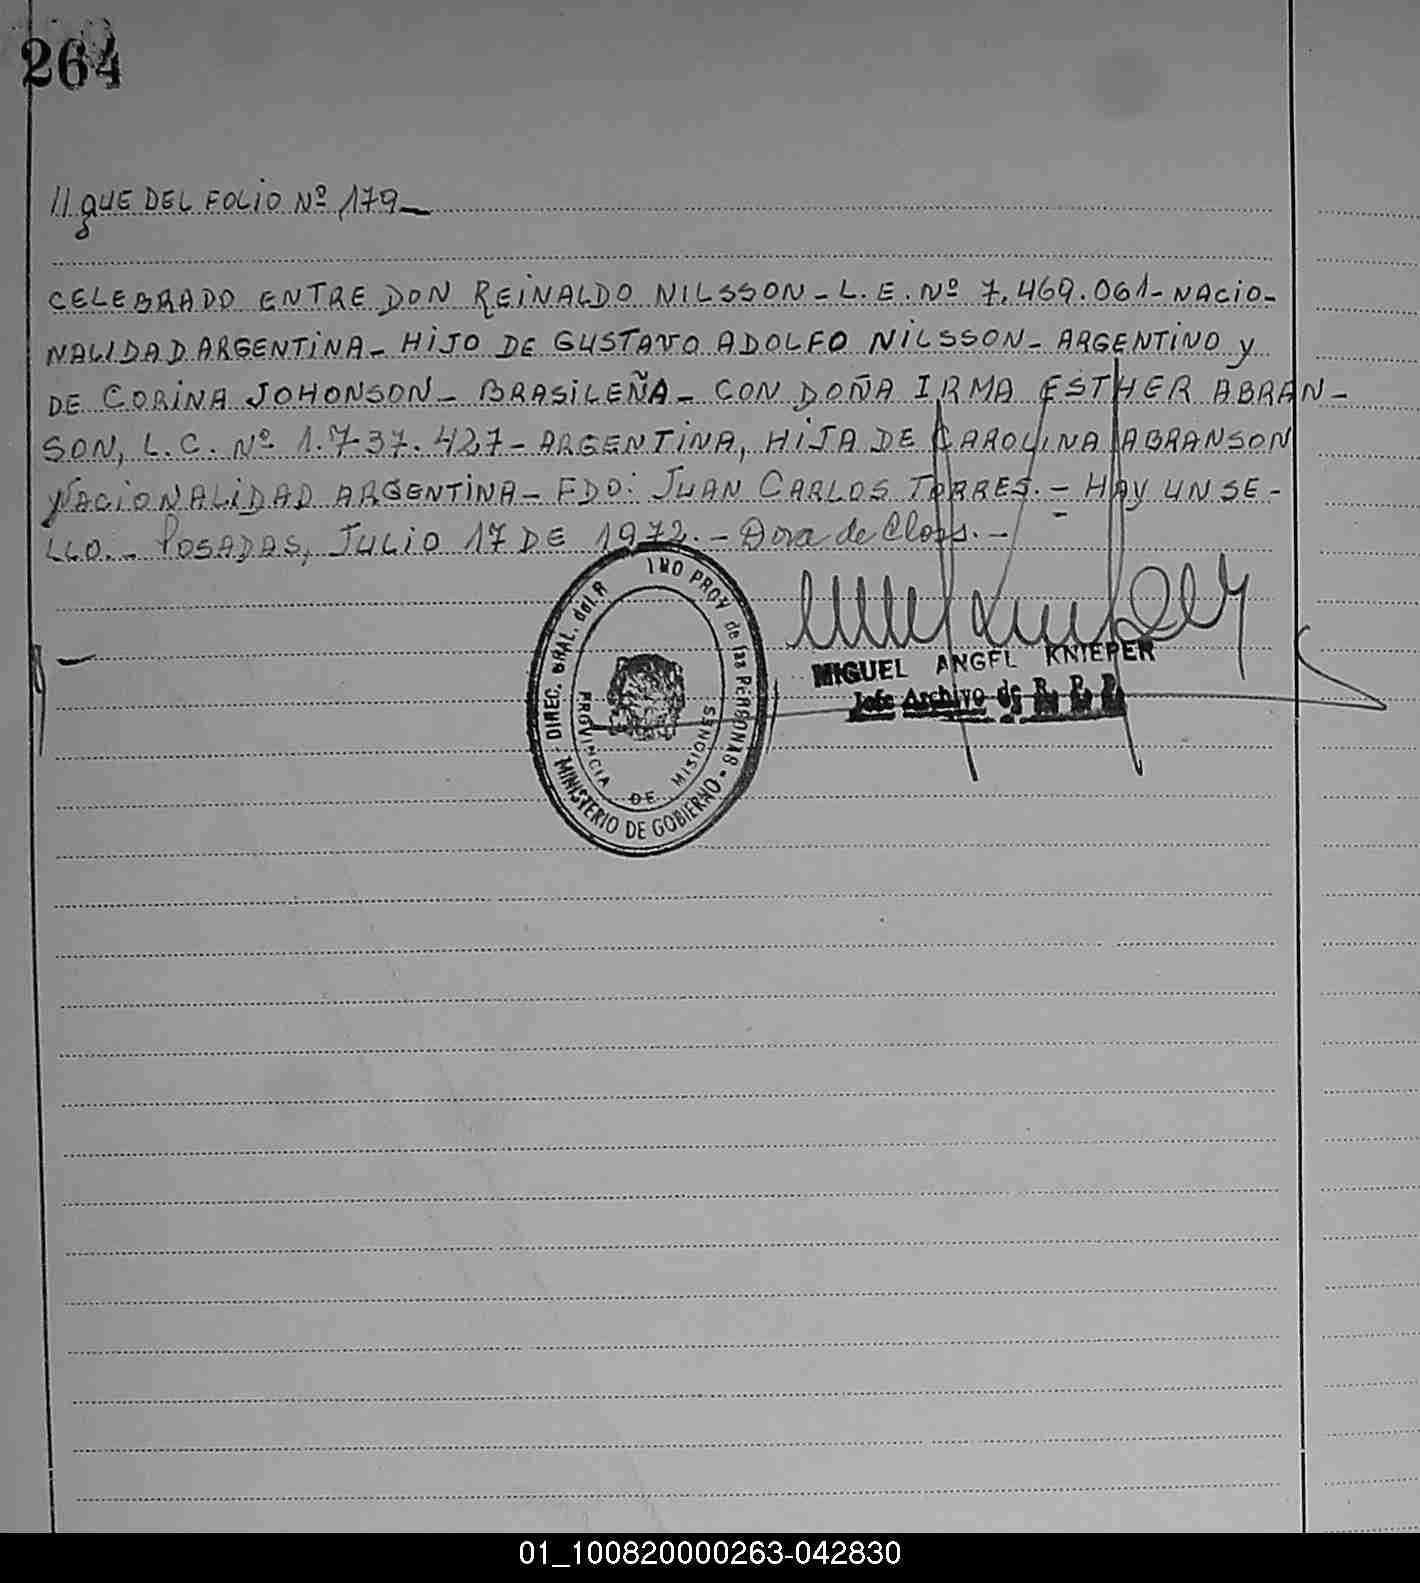 264
//gUE DEL FOLIO Nº 179_
CELEBRADO ENTRE DON REiNALDO NILSSON_ L.E. Nº 7.469.061- NACiO-
NALIDAD ARGENTINA_ HIJO DE GUSTAVO ADOLFO NILSSON_ ARGENTINO y
DE CORINA JOHONSON_ BRASILEÑA_ CON DOÑA IRMA ESTHER ABRAN-
SON, L.C. Nº 1.737.427- ARGENTINA, HIJA DE CAROLINA ABRANSON
NACIONALIDAD ARGENTINA_ FDO: JUAN CARLOS TORRES.- HAY UN SE-
LLO.- POSADAS, JULIO 17 DE 1972.- Dora de Closs.-
MIGUEL ANGEL KNIEPER
Jefe Archivo de R. P. P.
DIREC. GRAL. del R INO PROV de las PERSONAS
PROVINCIA DE MISIONES
MINISTERIO DE GOBIERNO
01_100820000263-042830